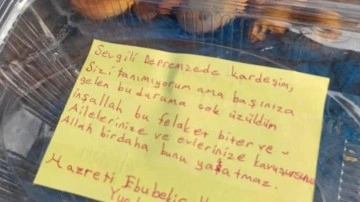 Sevgili Depremzede kardeşim,
Sizi tanımıyorum ama başınıza
gelen bu duruma çok üzüldüm
inşallah bu felaket biter ve
Ailelerinize ve evlerinize kavuşursunuz
Allah birdaha bunu yaşatmaz.
Hazreti Ebubekir